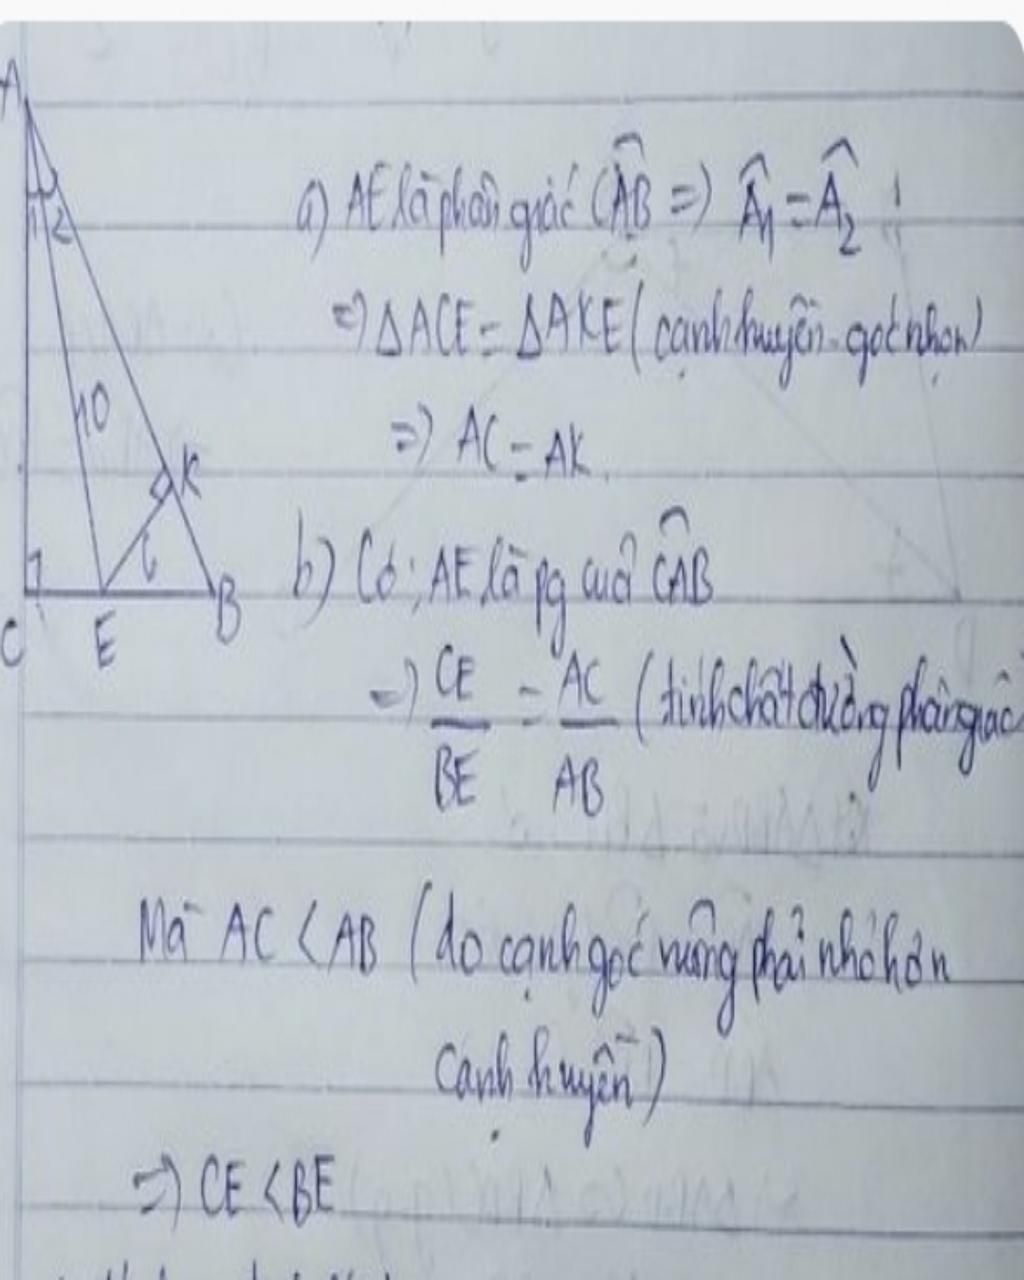 A
1 2
10
K
6
C E B
a) AE là phân giác CAB̂ => Â₁ = Â₂
=> ΔACE = ΔAKE (cạnh huyền - góc nhọn)
=> AC = AK.
b) Có: AE là pg cuả CAB̂
=> CE/BE = AC/AB (tính chất đường phân giác
Mà AC < AB (do cạnh góc vuông phải nhỏ hơn
cạnh huyền)
=> CE < BE